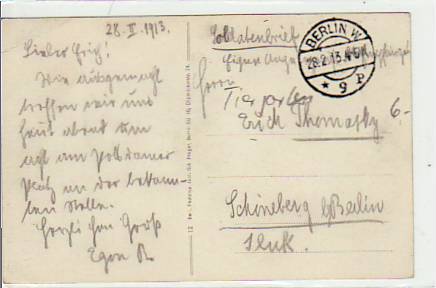 28. II. 1913.
Lieber Erich!
Wie ausgemacht
treffen wir uns
heut abend um
acht am Potsdamer
Platz an der bekann-
ten Stelle.
Herzlichen Gruß
Egon R.
Soldatenbrief
Eigene Angelegenheit des Empfängers
BERLIN W.
28.2.13.4-5N.
* 9 P
Herrn
Erich Thomasky
Schöneberg b/Berlin